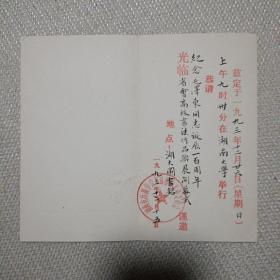 兹定于一九九三年十二月廿六日(星期日)
上午九时卅分在湖南大学举行
纪念毛泽东同志诞辰一百周年
省会高校书法作品联展开幕式
恭请
光临
谨邀
地点:湖大图书馆
一九九三年十二月十五日